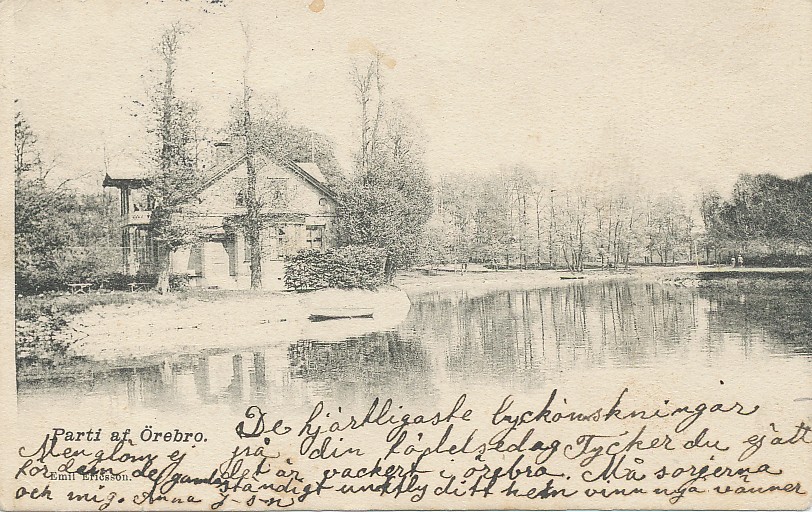 Parti af Örebro.
Emil Ericsson.
De hjärtligaste lyckönskningar
på din födelsedag Tycker du ej att
det är vackert i örebro. Må sorgerna
ständigt undfly ditt hem vinn nya vänner
Men glöm ej
för dem de gamla
och mig. Anna J-s-n